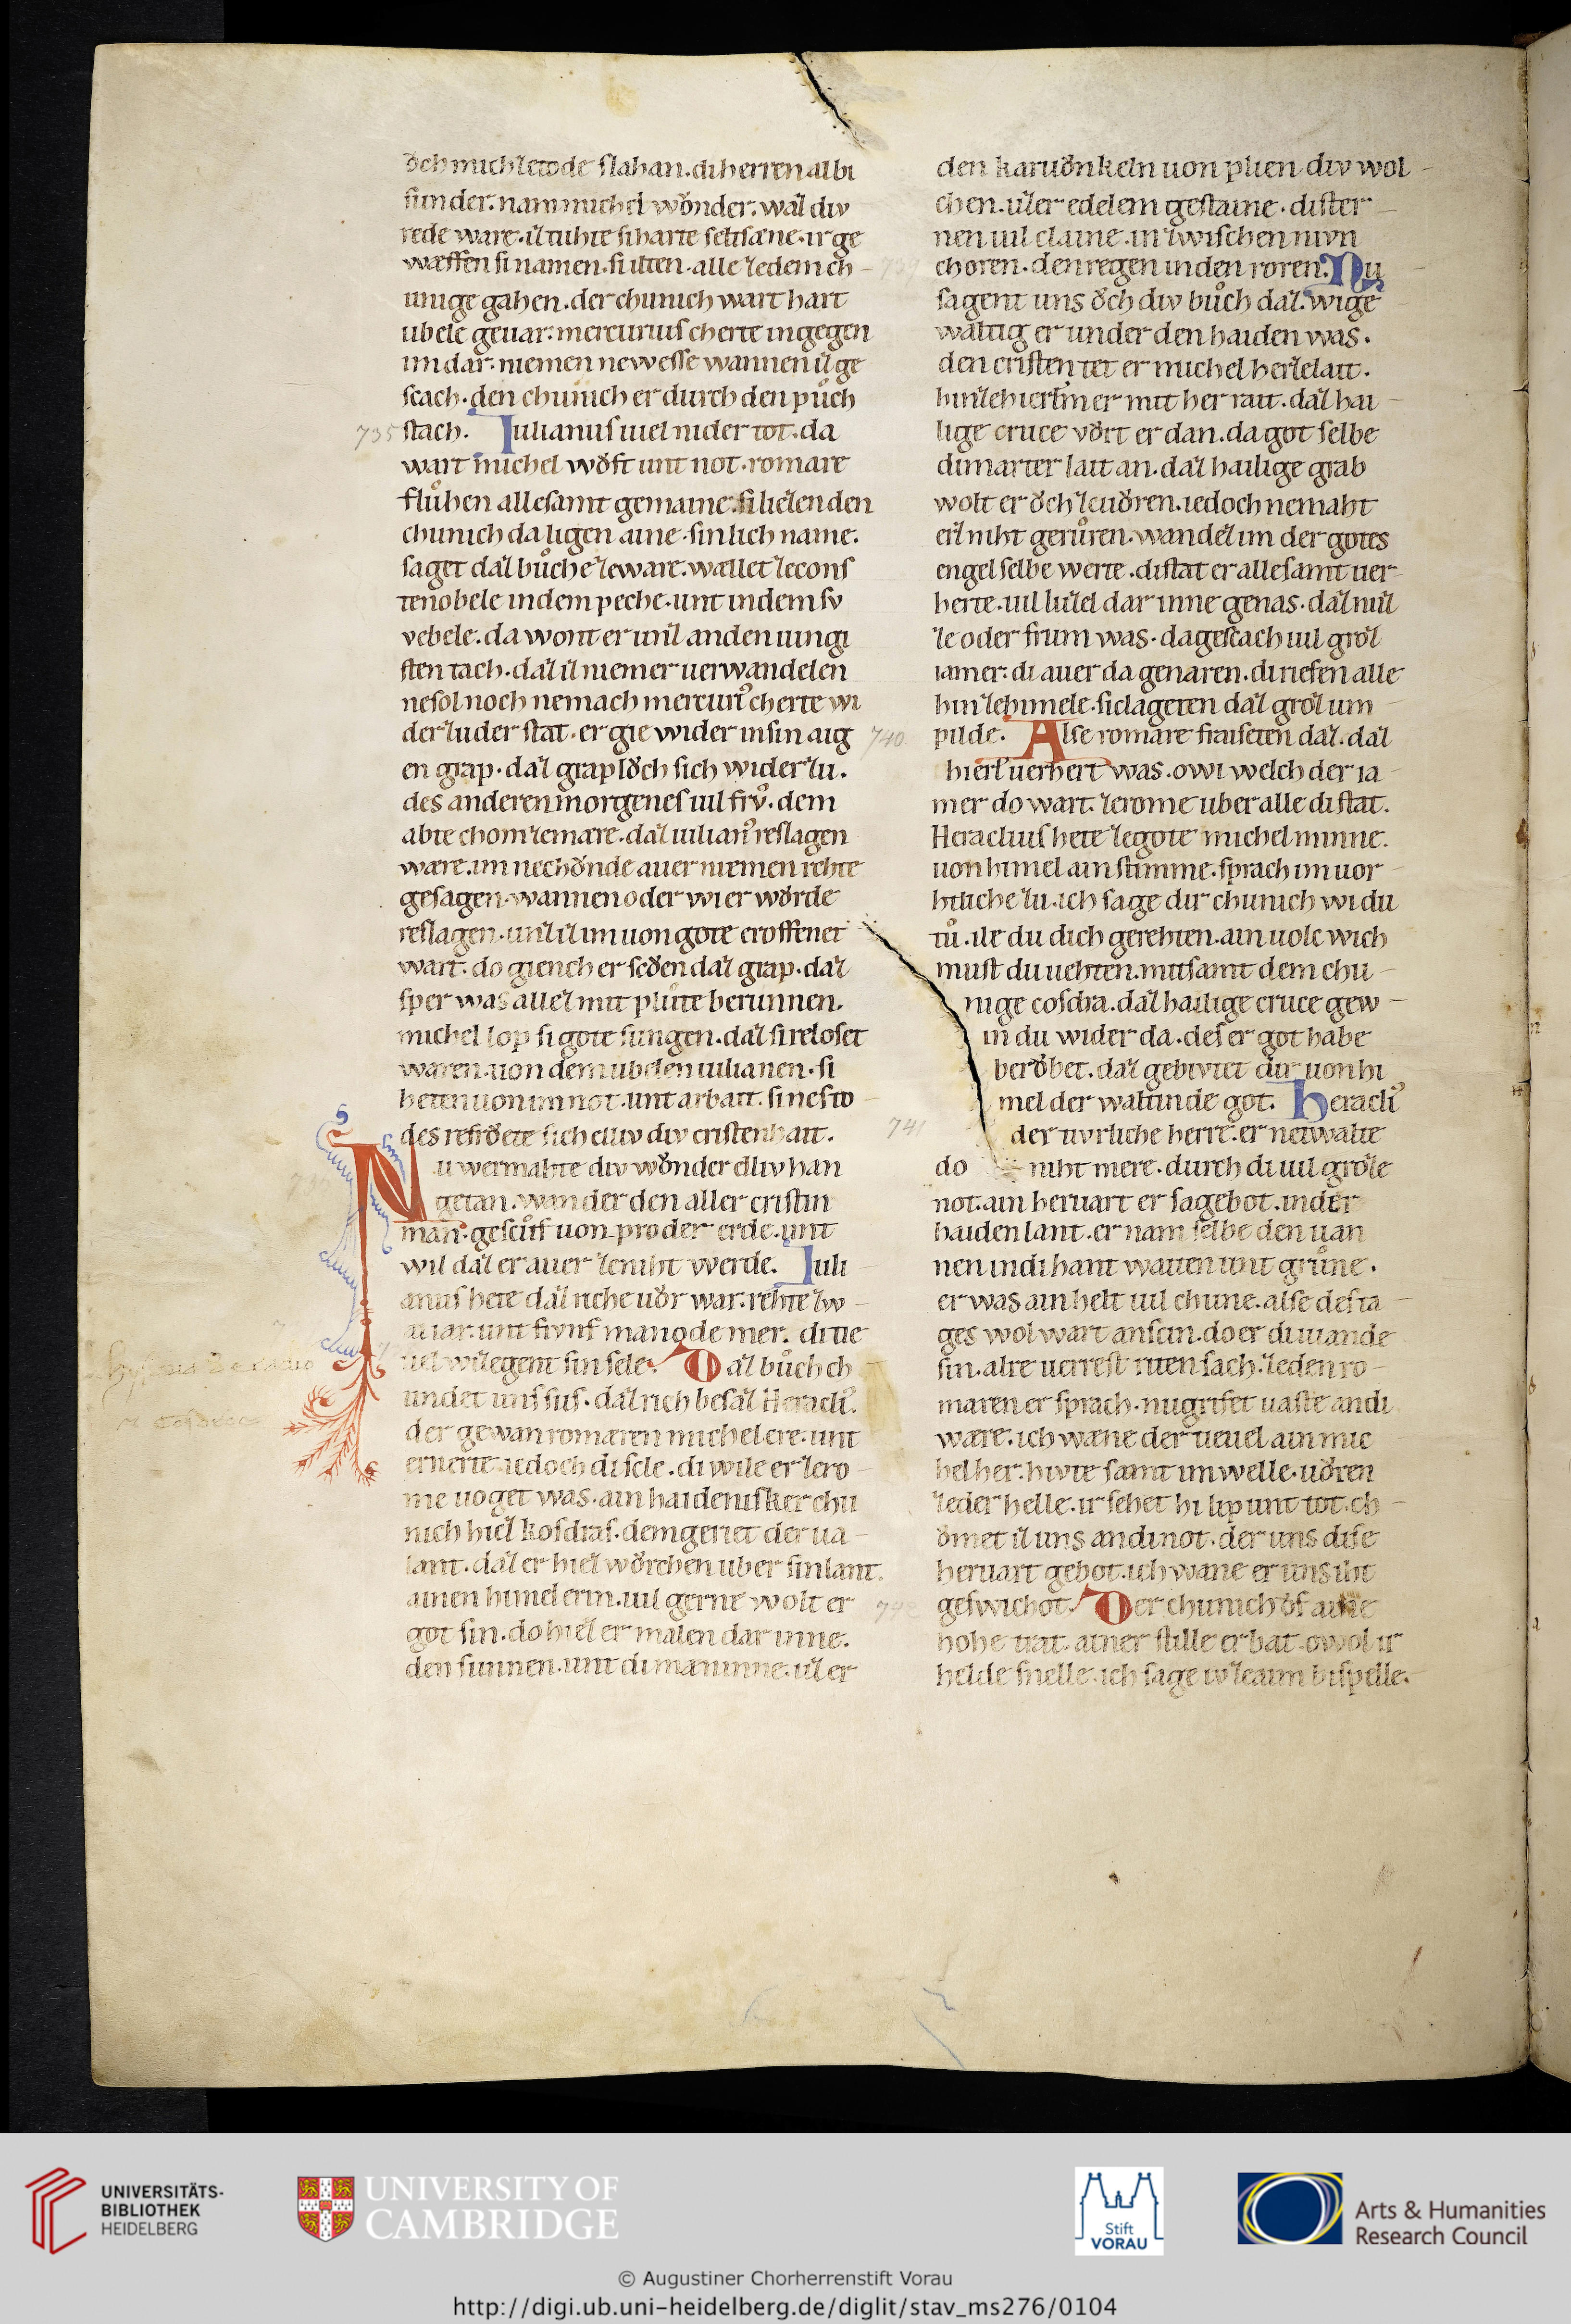 ǒch mich ze tode slahan. di herren al bi
sunder. nam michel wǒnder. waz div
rede ware. iz tuhte si harte seltsæne. ir ge
wæffen si namen. si ilten. alle ze dem ch
unige gahen. der chunich wart hart
ubele geuar. mercurius cherte in gegen
im dar. niemen ne wesse wannen iz ge
scach. den chunich er durch den půch
735 stach. Iulianus uiel nider tot. da
wart michel wǒft unt not. romare
fluhen alle samt gemaine. si liezen den
chunich da ligen aine. sin lich name.
saget daz bůch ze ware. wallet ze cons
tenobele in dem peche. unt in dem sv
vebele. da wont er unz an den iungi
sten tach. daz iz niemer uerwandelen
ne sol noch ne mach mercuri' cherte wi
der zu der stat. er gie wider in sin aig
en grap. daz grap slǒch sich wider zu.
des anderen morgenes uil frv̊. dem
abte chom ze mære. daz iulian' reslagen
wære. im ne chǒnde auer niemen rehte
gesagen. wannen oder wi er wǒrde
reslagen. unz iz im uon gote eroffenet
wart. do giench er scǒen daz grap. daz
sper was allez mit plůte berunnen.
michel lop si gote sungen. daz si reloset
waren. uon dem ubelen iulianen. si
heten uon im not. unt arbait. sines to
des refrǒete sich elliv div cristenhait.
Nu wer mahte div wǒnder elliv han
getan. wan der den aller eristin
man. gescůf uon pro der erde. unt
wil daz er auer ze niht werde. Iuli
anus hete daz riche uǒr war. rehte zw
ai iar. unt fivnf manode mer. di tie
uel wizegent sin sele. Daz bůch ch
undet uns sus. daz rich besaz Heracli'.
der gewan romæren michel ere. unt
ernerte iedoch di sele. di wile er ze ro
me uoget was. ain haidenisker chu
nich hiez kosdras. dem geriet der ua
lant. daz er hiez wǒrchen uber sin lant.
ainen himel erin. uil gerne wolt er
got sin. do hiez er malen dar inne.
den sunnen. unt di mæninne. uz er
den karuǒnkeln uon plien div wol
chen. uz er edelem gestaine. di ster
nen uil claine. in zwischen nivn
choren. den regen in den roren. Nu
sagent uns ǒch div bůch daz. wi ge
waltig er under den haiden was.
den cristen tet er michel herzelait.
hin ze hierlm er mit her rait. daz hai
lige cruce vǒrt er dan. da got selbe
di marter lait an. daz hailige grab
wolt er ǒch zeuǒren. iedoch ne maht
erz niht gerůren. wandez im der gotes
engel selbe werte. di stat er alle samt uer
herte. uil luzel dar inne genas. daz nuz
ze oder frum was. da gescach uil groz
iamer. di auer da genaren. di riefen alle
hin ze himele. si clageten daz groz um
740 pilde. Alse romare fraiseten daz. daz
hierl' uerhert was. owi welch der ia
mer do wart. ze rome uber alle di stat.
Heraclius hete ze gote michel minne.
uon himel ain stimme. sprach im uor
htliche zu. ich sage dir chunich wi du
tů. ile du dich gerehten. ain uolc wich
must du uehten. mit samt dem chu
nige cosdra. daz hailige cruce gew
in du wider da. des er got habe
berǒbet. daz gebivtet dir uon hi
mel der waltinde got. Heracli'
741 der tivrliche herre. er ne twalte
do niht mere. durch di uil groze
not. ain heruart er sa gebot. in der
haiden lant. er nam selbe den uan
nen in di hant waiten unt grůne.
er was ain helt uil chune. alse des ta
ges wol wart anscin. do er di uiande
sin. alre uerrest riten sach. ze den ro
maren er sprach. nu grifet uaste an di
ware. ich wæne der tieuel ain mic
hel her. hivte samt im welle. uǒren
ze der helle. ir sehet hi lip unt tot. ch
ǒmet iz uns an di not. der uns dise
heruart gebot. ich wane er uns iht
geswichot. Der chunich ǒf aine
hohe trat. ainer stille er bat. owol ir
helde snelle. ich sage iw ze aim bispelle.
UNIVERSITÄTS-
BIBLIOTHEK
HEIDELBERG
UNIVERSITY OF
CAMBRIDGE
Stift
VORAU
Arts & Humanities
Research Council
© Augustiner Chorherrenstift Vorau
http://digi.ub.uni-heidelberg.de/diglit/stav_ms276/0104